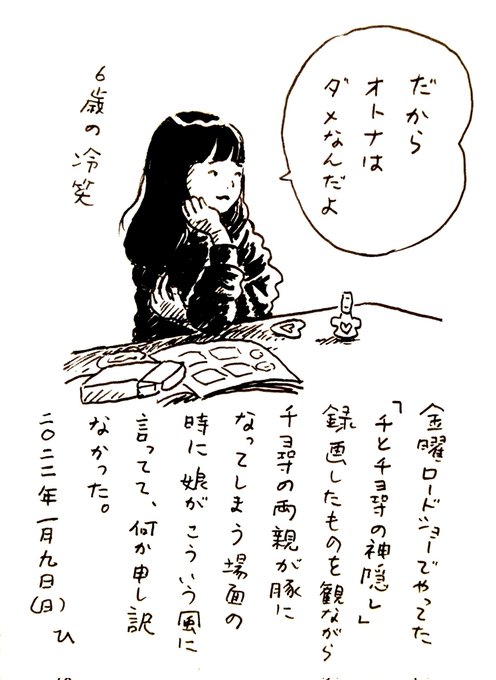 だから
オトナは
ダメなんだよ
6歳の冷笑
金曜ロードショーでやってた
「千と千尋の神隠し」
録画したものを観ながら
千尋の両親が豚に
なってしまう場面の
時に娘がこういう風に
言ってて、何か申し訳
なかった。
二〇二二年一月九日(日)ひ